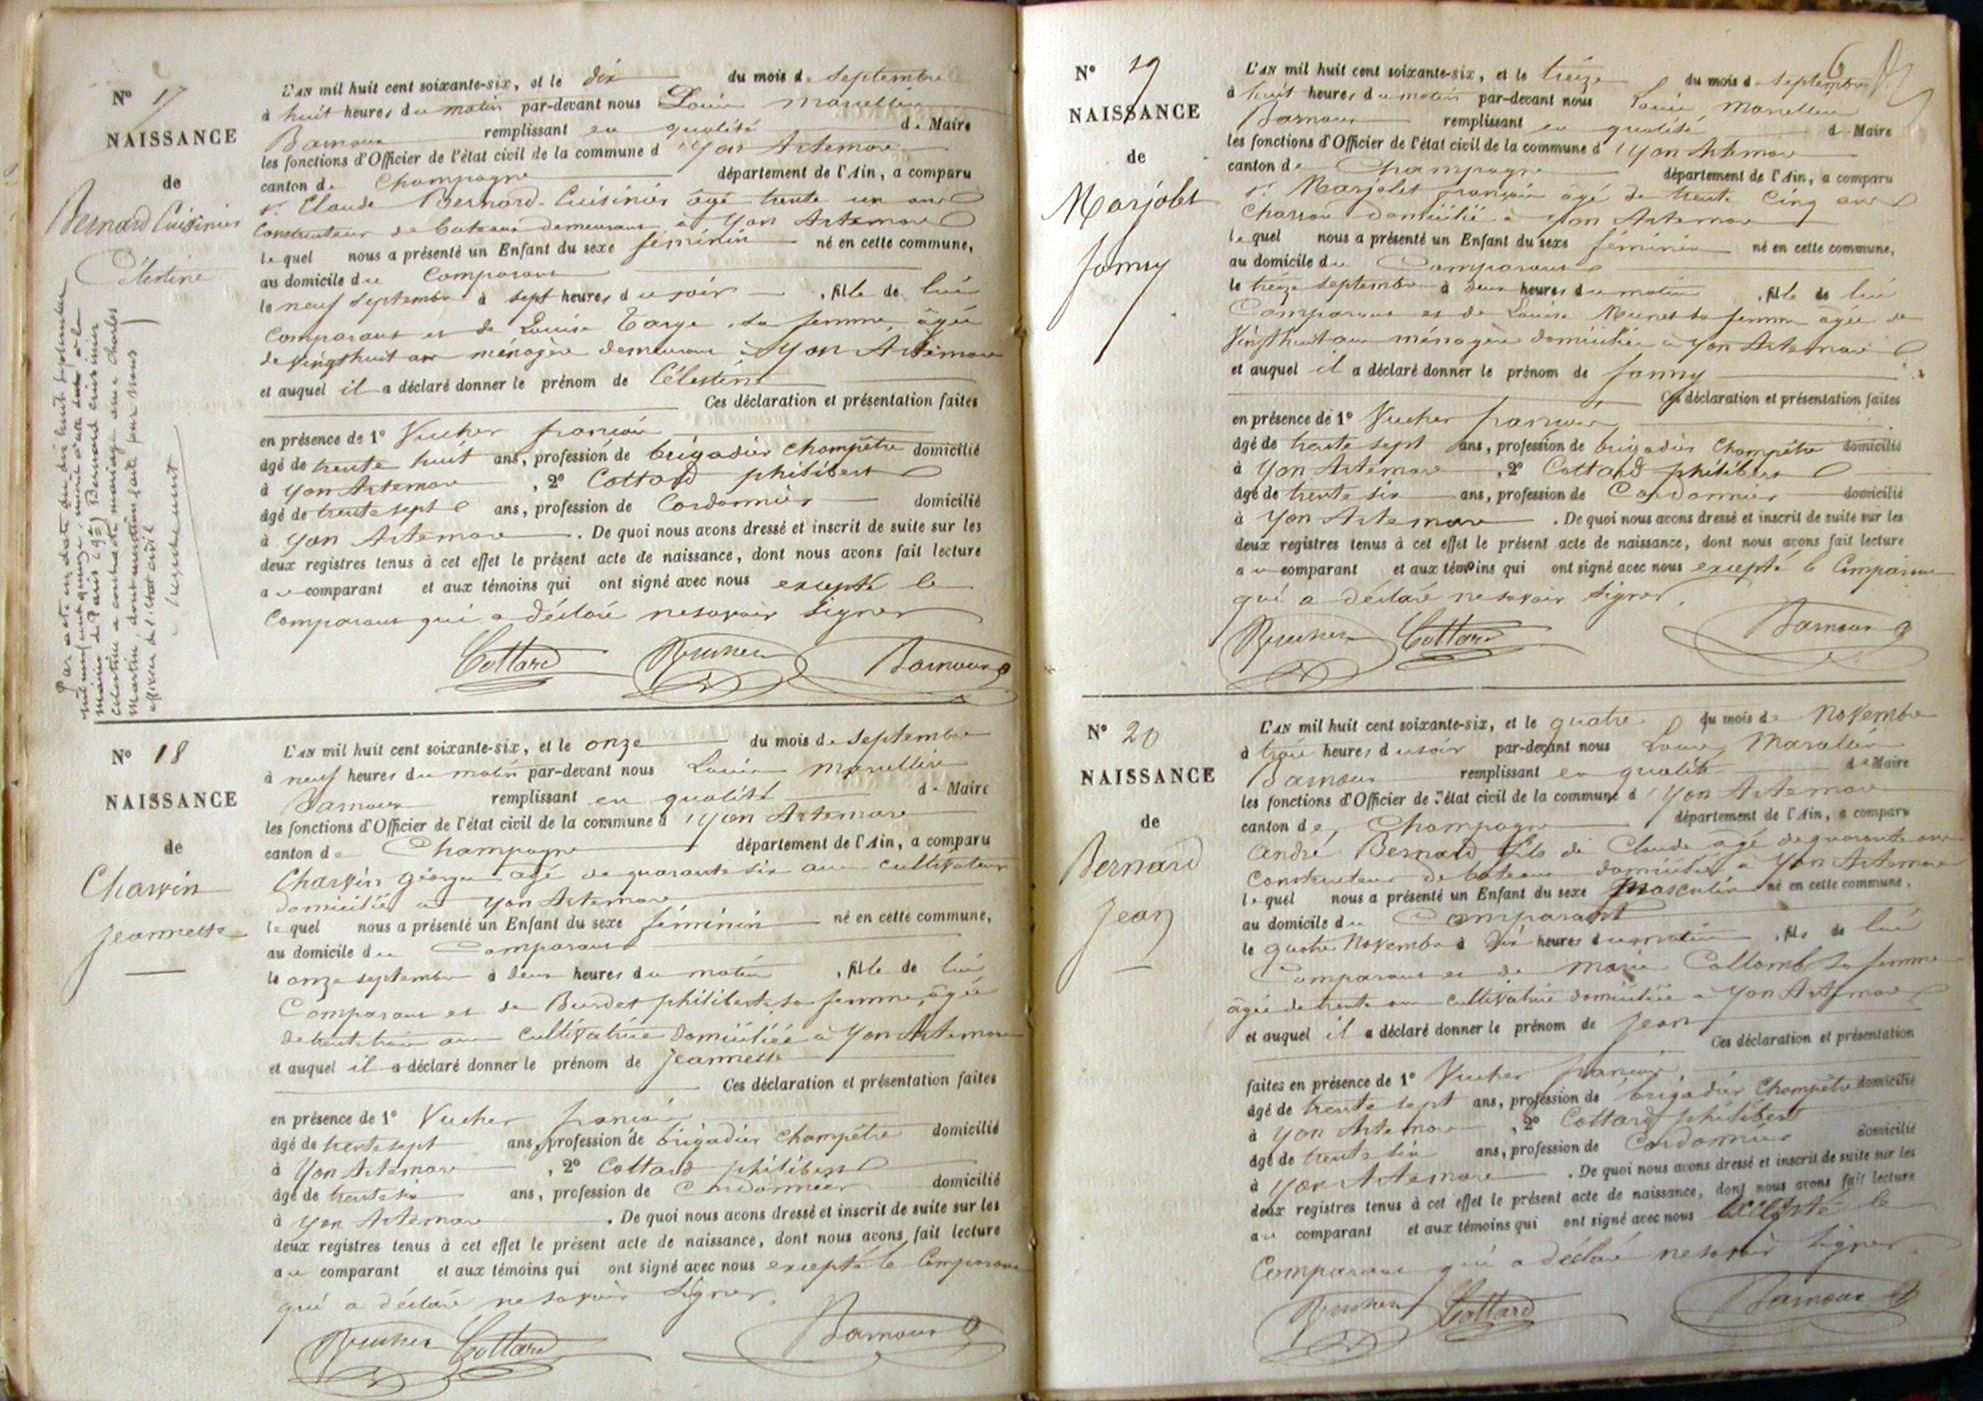 N° 17
NAISSANCE
de
Bernard Cuisinier
Célestine
Par acte en date du dix huit septembre
mil neuf cent quinze, inscrit à la
mairie de Paris (9e) Bernard cuisinier
célestine a contracté mariage avec Charles
Martin, dont mention faite par nous
officier de l'état civil
L'AN mil huit cent soixante-six, et le dix du mois de septembre
à huit heures du matin par-devant nous Louis Marcellin
Barnoux remplissant en qualité de Maire
les fonctions d'Officier de l'état civil de la commune d'Yon Artemare
canton de Champagne département de l'Ain, a comparu
Sr. Claude Bernard-Cuisinier âgé trente un ans
Constructeur de bateaux demeurant à Yon Artemare
lequel nous a présenté un Enfant du sexe féminin né en cette commune,
au domicile du Comparant
le neuf septembre à sept heures du soir, fille de lui
Comparant et de Louise Targe sa femme, âgée
de Vingthuit ans ménagère demeurant à Yon Artemare
et auquel il a déclaré donner le prénom de Célestine
Ces déclaration et présentation faites
en présence de 1° Vucher françois
âgé de trente huit ans, profession de brigadier Champêtre domicilié
à Yon Artemare, 2° Cottard philibert
âgé de trente sept ans, profession de Cordonnier domicilié
à Yon Artemare. De quoi nous avons dressé et inscrit de suite sur les
deux registres tenus à cet effet le présent acte de naissance, dont nous avons fait lecture
au comparant et aux témoins qui ont signé avec nous excepté le
Comparant qui a déclaré ne savoir signer
Cottard Vucher Barnoux
N° 18
NAISSANCE
de
Charvin
Jeannette
L'AN mil huit cent soixante-six, et le onze du mois de septembre
à neuf heures du matin par-devant nous Louis Marcellin
Barnoux remplissant en qualité de Maire
les fonctions d'Officier de l'état civil de la commune d'Yon Artemare
canton de Champagne département de l'Ain, a comparu
Charvin Georges âgé de quarante six ans cultivateur
domicilié à Yon Artemare
lequel nous a présenté un Enfant du sexe féminin né en cette commune,
au domicile du Comparant
le onze septembre à deux heures du matin, fille de lui
Comparant et de Burdet philiberte sa femme, âgée
de trente trois ans cultivatrice domiciliée à Yon Artemare
et auquel il a déclaré donner le prénom de Jeannette
Ces déclaration et présentation faites
en présence de 1° Vucher françois
âgé de trente sept ans, profession de brigadier Champêtre domicilié
à Yon Artemare, 2° Cottard philibert
âgé de trente six ans, profession de Cordonnier domicilié
à Yon Artemare. De quoi nous avons dressé et inscrit de suite sur les
deux registres tenus à cet effet le présent acte de naissance, dont nous avons fait lecture
au comparant et aux témoins qui ont signé avec nous excepté le Comparant
qui a déclaré ne savoir signer.
Vucher Cottard Barnoux
6
N° 19
NAISSANCE
de
Marjolet
fanny
L'AN mil huit cent soixante-six, et le treize du mois de septembre
à huit heures du matin par-devant nous Louis Marcellin
Barnoux remplissant en qualité de Maire
les fonctions d'Officier de l'état civil de la commune d'Yon Artemare
canton de Champagne département de l'Ain, a comparu
Sr. Marjolet françois âgé de trente cinq ans
Charron domicilié à Yon Artemare
lequel nous a présenté un Enfant du sexe féminin né en cette commune,
au domicile du Comparant
le treize septembre à deux heures du matin, fille de lui
Comparant et de Louise Meunet sa femme âgée de
Vingthuit ans ménagère domiciliée à Yon Artemare
et auquel il a déclaré donner le prénom de fanny
Ces déclaration et présentation faites
en présence de 1° Vucher françois
âgé de trente sept ans, profession de brigadier Champêtre domicilié
à Yon Artemare, 2° Cottard philibert
âgé de trente six ans, profession de Cordonnier domicilié
à Yon Artemare. De quoi nous avons dressé et inscrit de suite sur les
deux registres tenus à cet effet le présent acte de naissance, dont nous avons fait lecture
au comparant et aux témoins qui ont signé avec nous excepté le Comparant
qui a déclaré ne savoir signer.
Vucher Cottard Barnoux
N° 20
NAISSANCE
de
Bernard
Jean
L'AN mil huit cent soixante-six, et le quatre du mois de Novembre
à trois heures du soir par-devant nous Louis Marcellin
Barnoux remplissant en qualité de Maire
les fonctions d'Officier de l'état civil de la commune d'Yon Artemare
canton de Champagne département de l'Ain, a comparu
André Bernard fils de Claude âgé de quarante ans
Constructeur de bateaux domicilié à Yon Artemare
lequel nous a présenté un Enfant du sexe masculin né en cette commune,
au domicile du Comparant
le quatre Novembre à dix heures du matin, fils de lui
Comparant et de Marie Collomb sa femme
âgée de trente ans cultivatrice domiciliée à Yon Artemare
et auquel il a déclaré donner le prénom de Jean
Ces déclaration et présentation
faites en présence de 1° Vucher françois,
âgé de trente sept ans, profession de brigadier Champêtre domicilié
à Yon Artemare, 2° Cottard philibert
âgé de trente six ans, profession de Cordonnier domicilié
à Yon Artemare. De quoi nous avons dressé et inscrit de suite sur les
deux registres tenus à cet effet le présent acte de naissance, dont nous avons fait lecture
au comparant et aux témoins qui ont signé avec nous excepté le
Comparant qui a déclaré ne savoir signer.
Vucher Cottard Barnoux